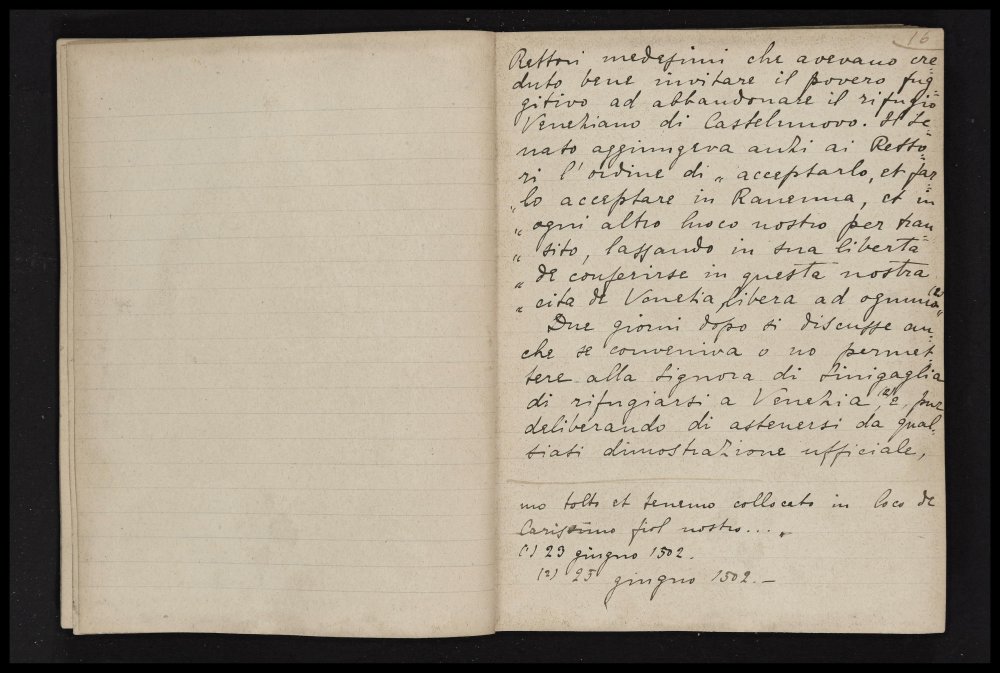 16
Rettori medesimi che avevano cre=
duto bene invitare il povero fug=
gitivo ad abbandonare il rifugio
Veneziano di Castelnuovo. Il Se=
nato aggiungeva anzi ai Retto=
ri l'ordine di „ acceptarlo, et far
„ lo acceptare in Ravenna, et in
„ ogni altro luoco nostro per tran=
„ sito, lassando in sua libertà
„ de conferirse in questa nostra
„ cita de Venetia, libera ad ognuno (2)„
Due giorni dopo si discusse an=
che se conveniva o no permet=
tere alla Signora di Sinigaglia
di rifugiarsi a Venezia, (2) e, pur
deliberando di astenersi da qual=
siasi dimostrazione ufficiale,
mo tolto et tenemo collocato in loco de
Carissimo fiol nostro... „
(1) 23 giugno 1502.
(2) 25 giugno 1502. —